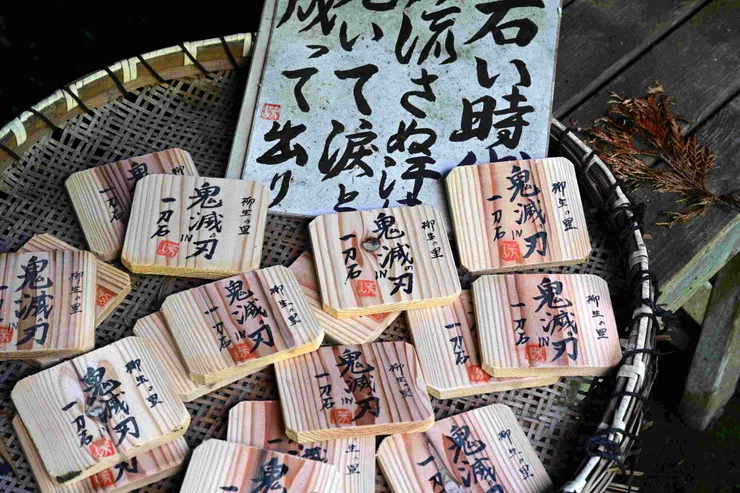 若い時
流さぬ汗は
老いて涙と
成って出り
鬼
柳生の里
鬼滅の刃
IN
一刀石
柳生の里
鬼滅の刃
IN
一刀石
柳生の里
鬼滅の刃
IN
一刀石
柳生の里
鬼滅の刃
一刀石
柳生の里
鬼滅の刃
IN
一刀石
柳生の里
鬼滅の刃
IN
一刀石
柳生の里
鬼滅の刃
IN
一刀石
柳生の里
鬼滅の刃
IN
一刀石
柳生の里
鬼滅
一刀
鬼
一刀石